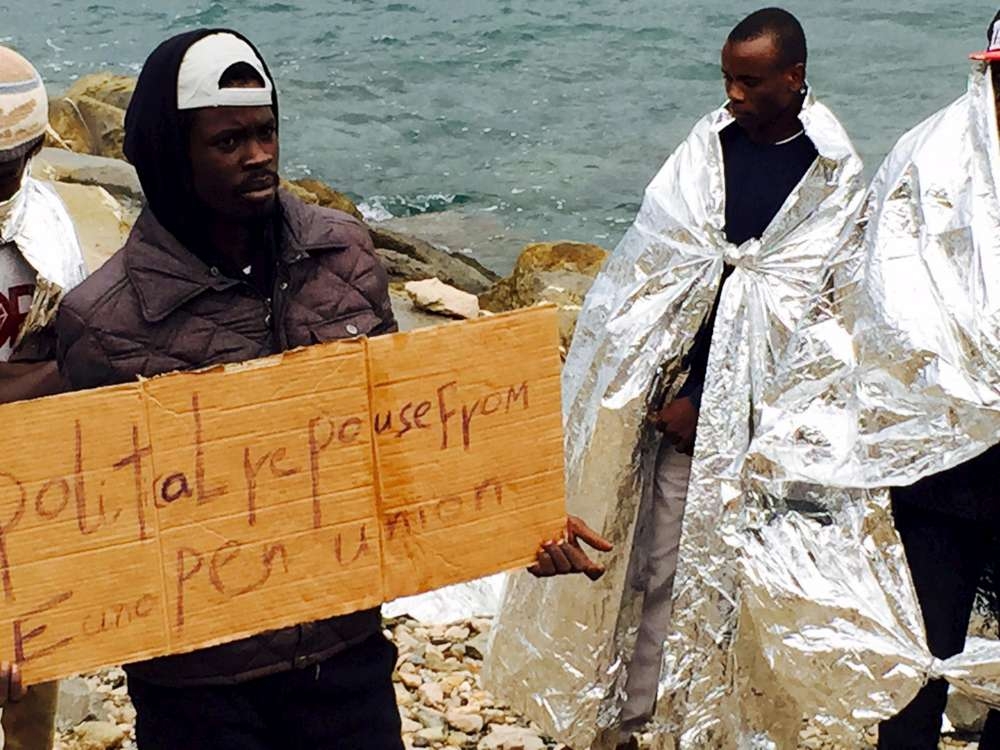 polital repouse From
Europen union